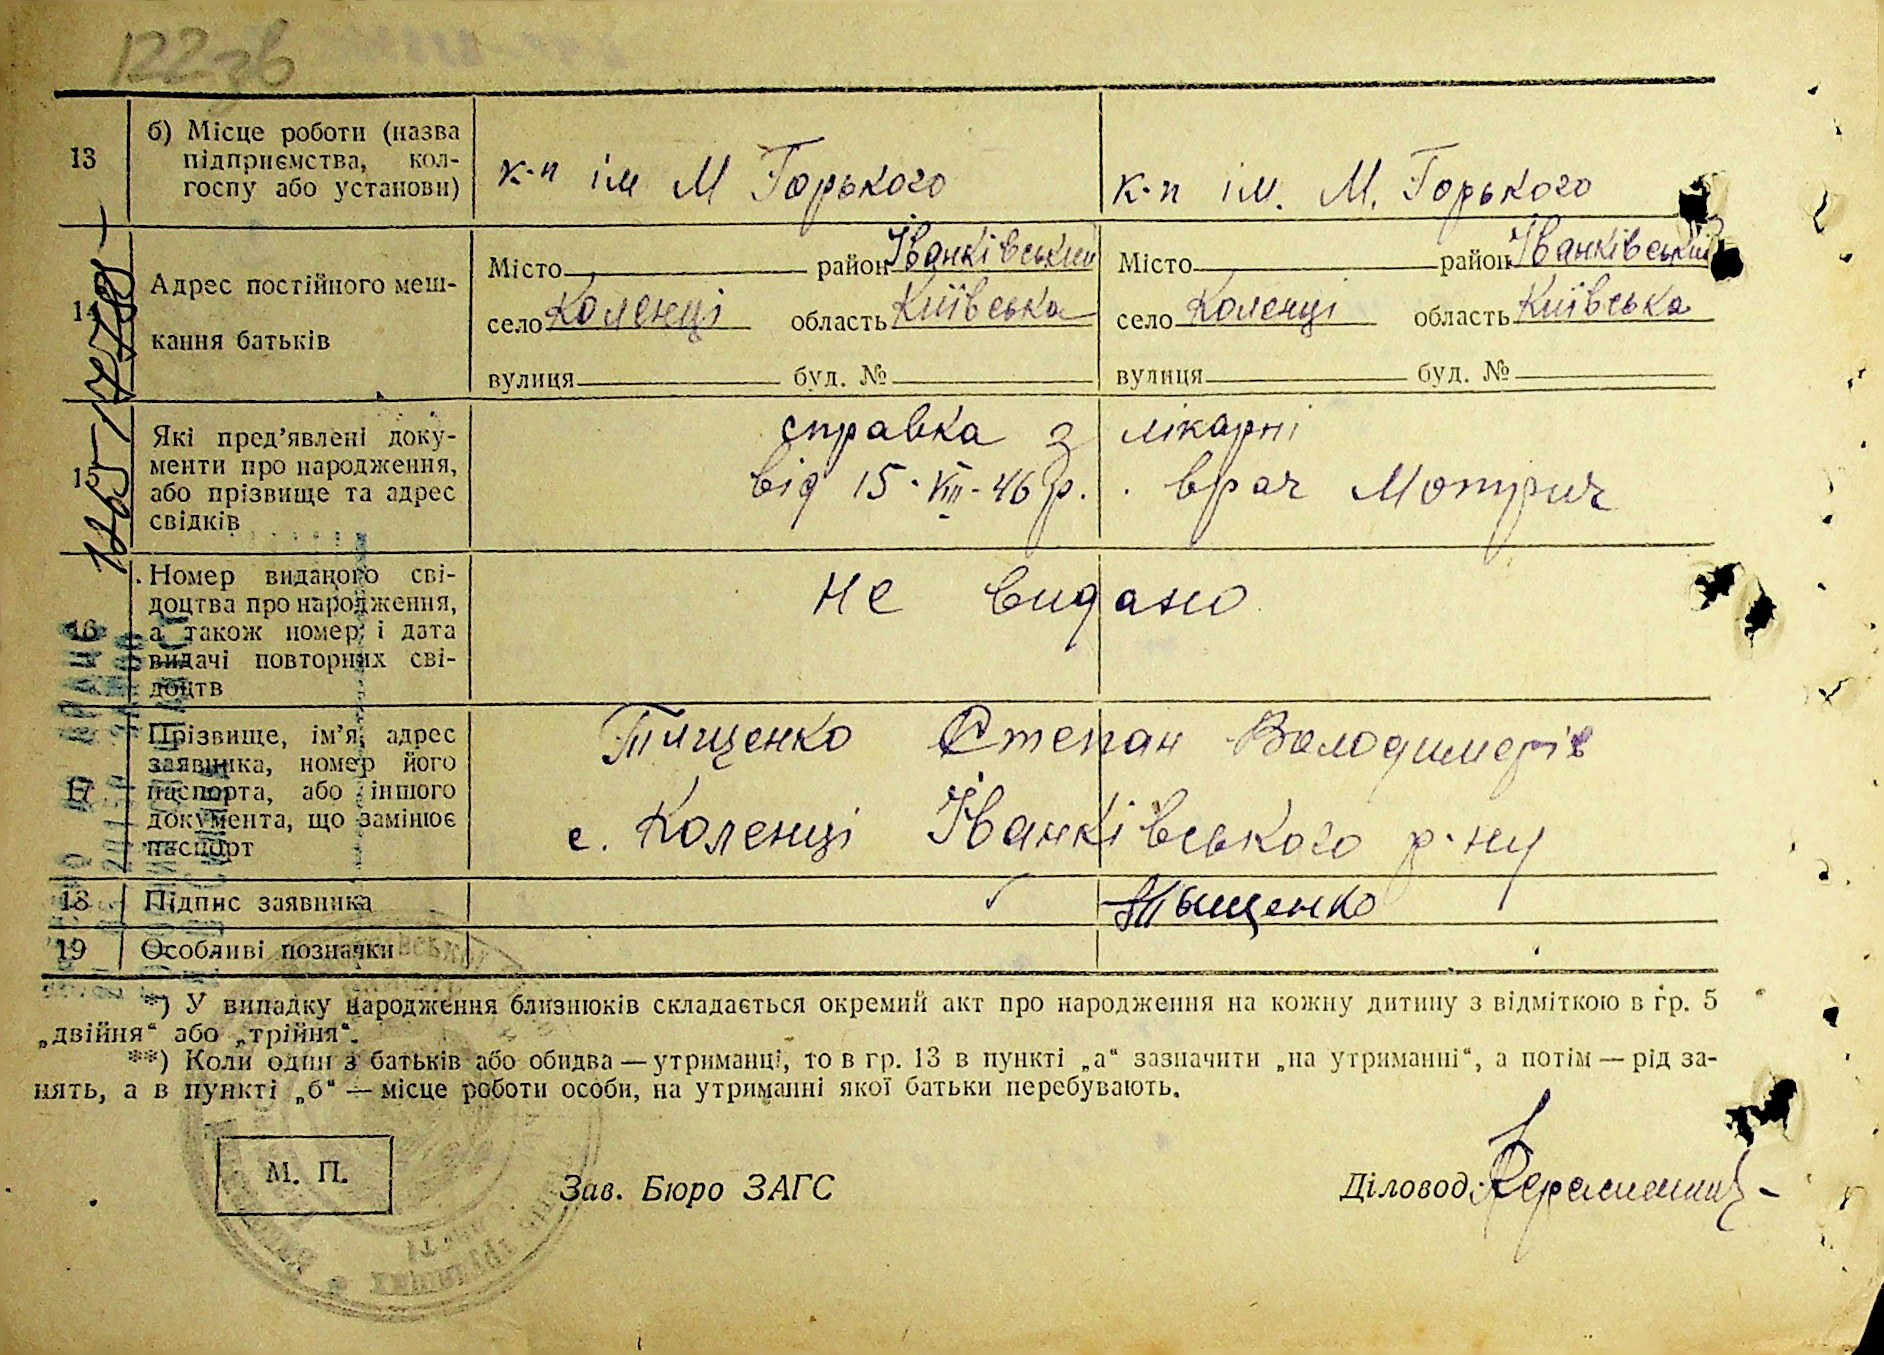 122зв
13 б) Місце роботи (назва підприємства, колгоспу або установи)
к-п ім М Горького
к-п ім. М. Горького
14 Адрес постійного мешкання батьків
Місто район Іванківський
село Коленці область Київська
вулиця буд. №
Місто район Іванківський
село Коленці область Київська
вулиця буд. №
15 Які пред’явлені документи про народження, або прізвище та адрес свідків
справка з лікарні
від 15-VIII-46 р. врач Мотрич
16 Номер виданого свідоцтва про народження, а також номер і дата видачі повторних свідоцтв
не видано
17 Прізвище, ім’я, адрес заявника, номер його паспорта, або іншого документа, що замінює паспорт
Тищенко Степан Володимерів
с. Коленці Іванківського р-ну
18 Підпис заявника
Тыщенко
19 Особливі позначки
*) У випадку народження близнюків складається окремий акт про народження на кожну дитину з відміткою в гр. 5
„двійня“ або „трійня“.
**) Коли один з батьків або обидва — утриманці, то в гр. 13 в пункті „а“ зазначити „на утриманні“, а потім — рід за-
нять, а в пункті „б“ — місце роботи особи, на утриманні якої батьки перебувають.
М. П.
Зав. Бюро ЗАГС
Діловод